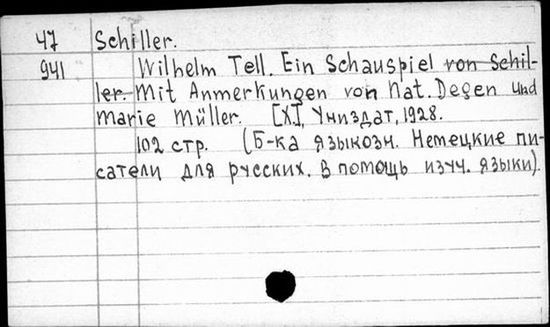 47 Schiller.
941 Wilhelm Tell. Ein Schauspiel von Schil-
ler. Mit Anmerkungen von Nat. Degen und
Marie Müller. [Х.], Униздат, 1928.
102 стр. (Б-ка языкозн. Немецкие пи-
сатели для русских. В помощь изуч. языки).